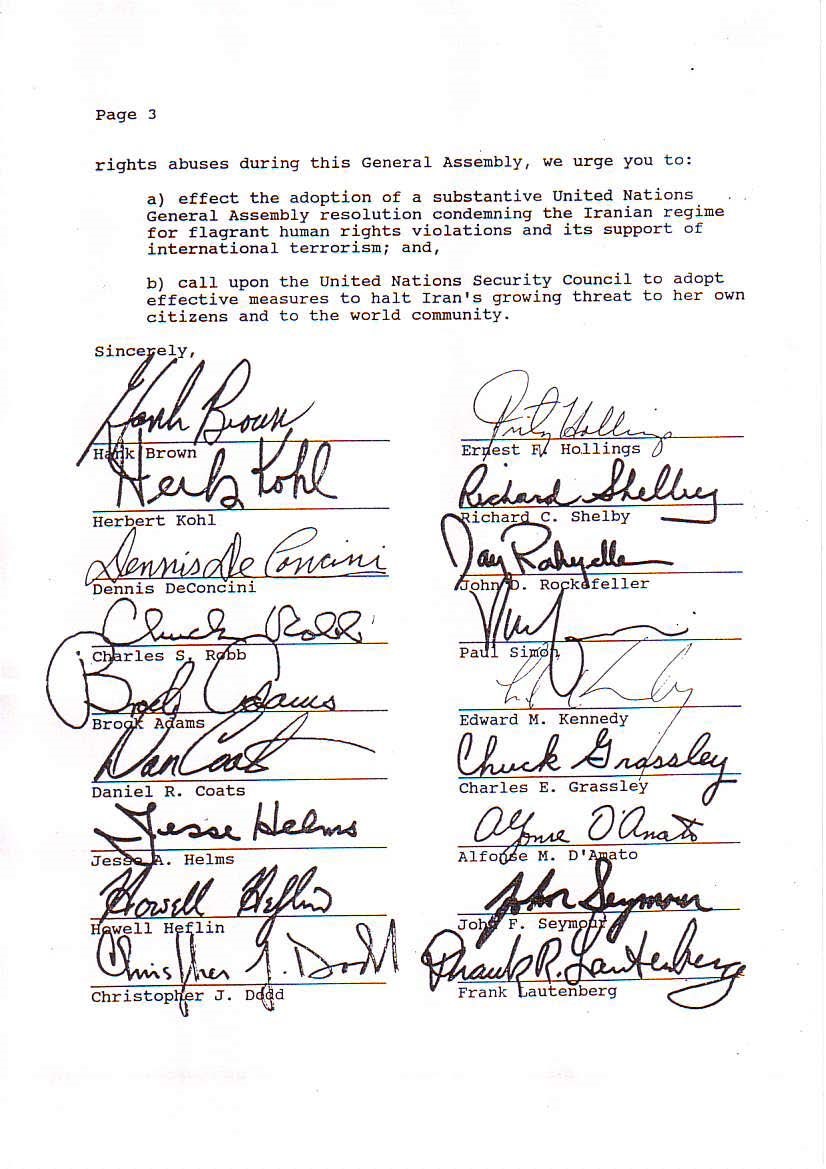 Page 3
rights abuses during this General Assembly, we urge you to:
a) effect the adoption of a substantive United Nations
General Assembly resolution condemning the Iranian regime
for flagrant human rights violations and its support of
international terrorism; and,
b) call upon the United Nations Security Council to adopt
effective measures to halt Iran's growing threat to her own
citizens and to the world community.
Sincerely,
Hank Brown
Hank Brown
Herb Kohl
Herbert Kohl
Dennis DeConcini
Dennis DeConcini
Chuck Robb
Charles S. Robb
Brock Adams
Brook Adams
Dan Coats
Daniel R. Coats
Jesse Helms
Jesse A. Helms
Howell Heflin
Howell Heflin
Christopher J. Dodd
Christopher J. Dodd
Fritz Hollings
Ernest F. Hollings
Richard Shelby
Richard C. Shelby
Jay Rockefeller
John D. Rockefeller
Paul Simon
Edward M. Kennedy
Chuck Grassley
Charles E. Grassley
Alfonse D'Amato
Alfonse M. D'Amato
John Seymour
John F. Seymour
Frank R. Lautenberg
Frank Lautenberg